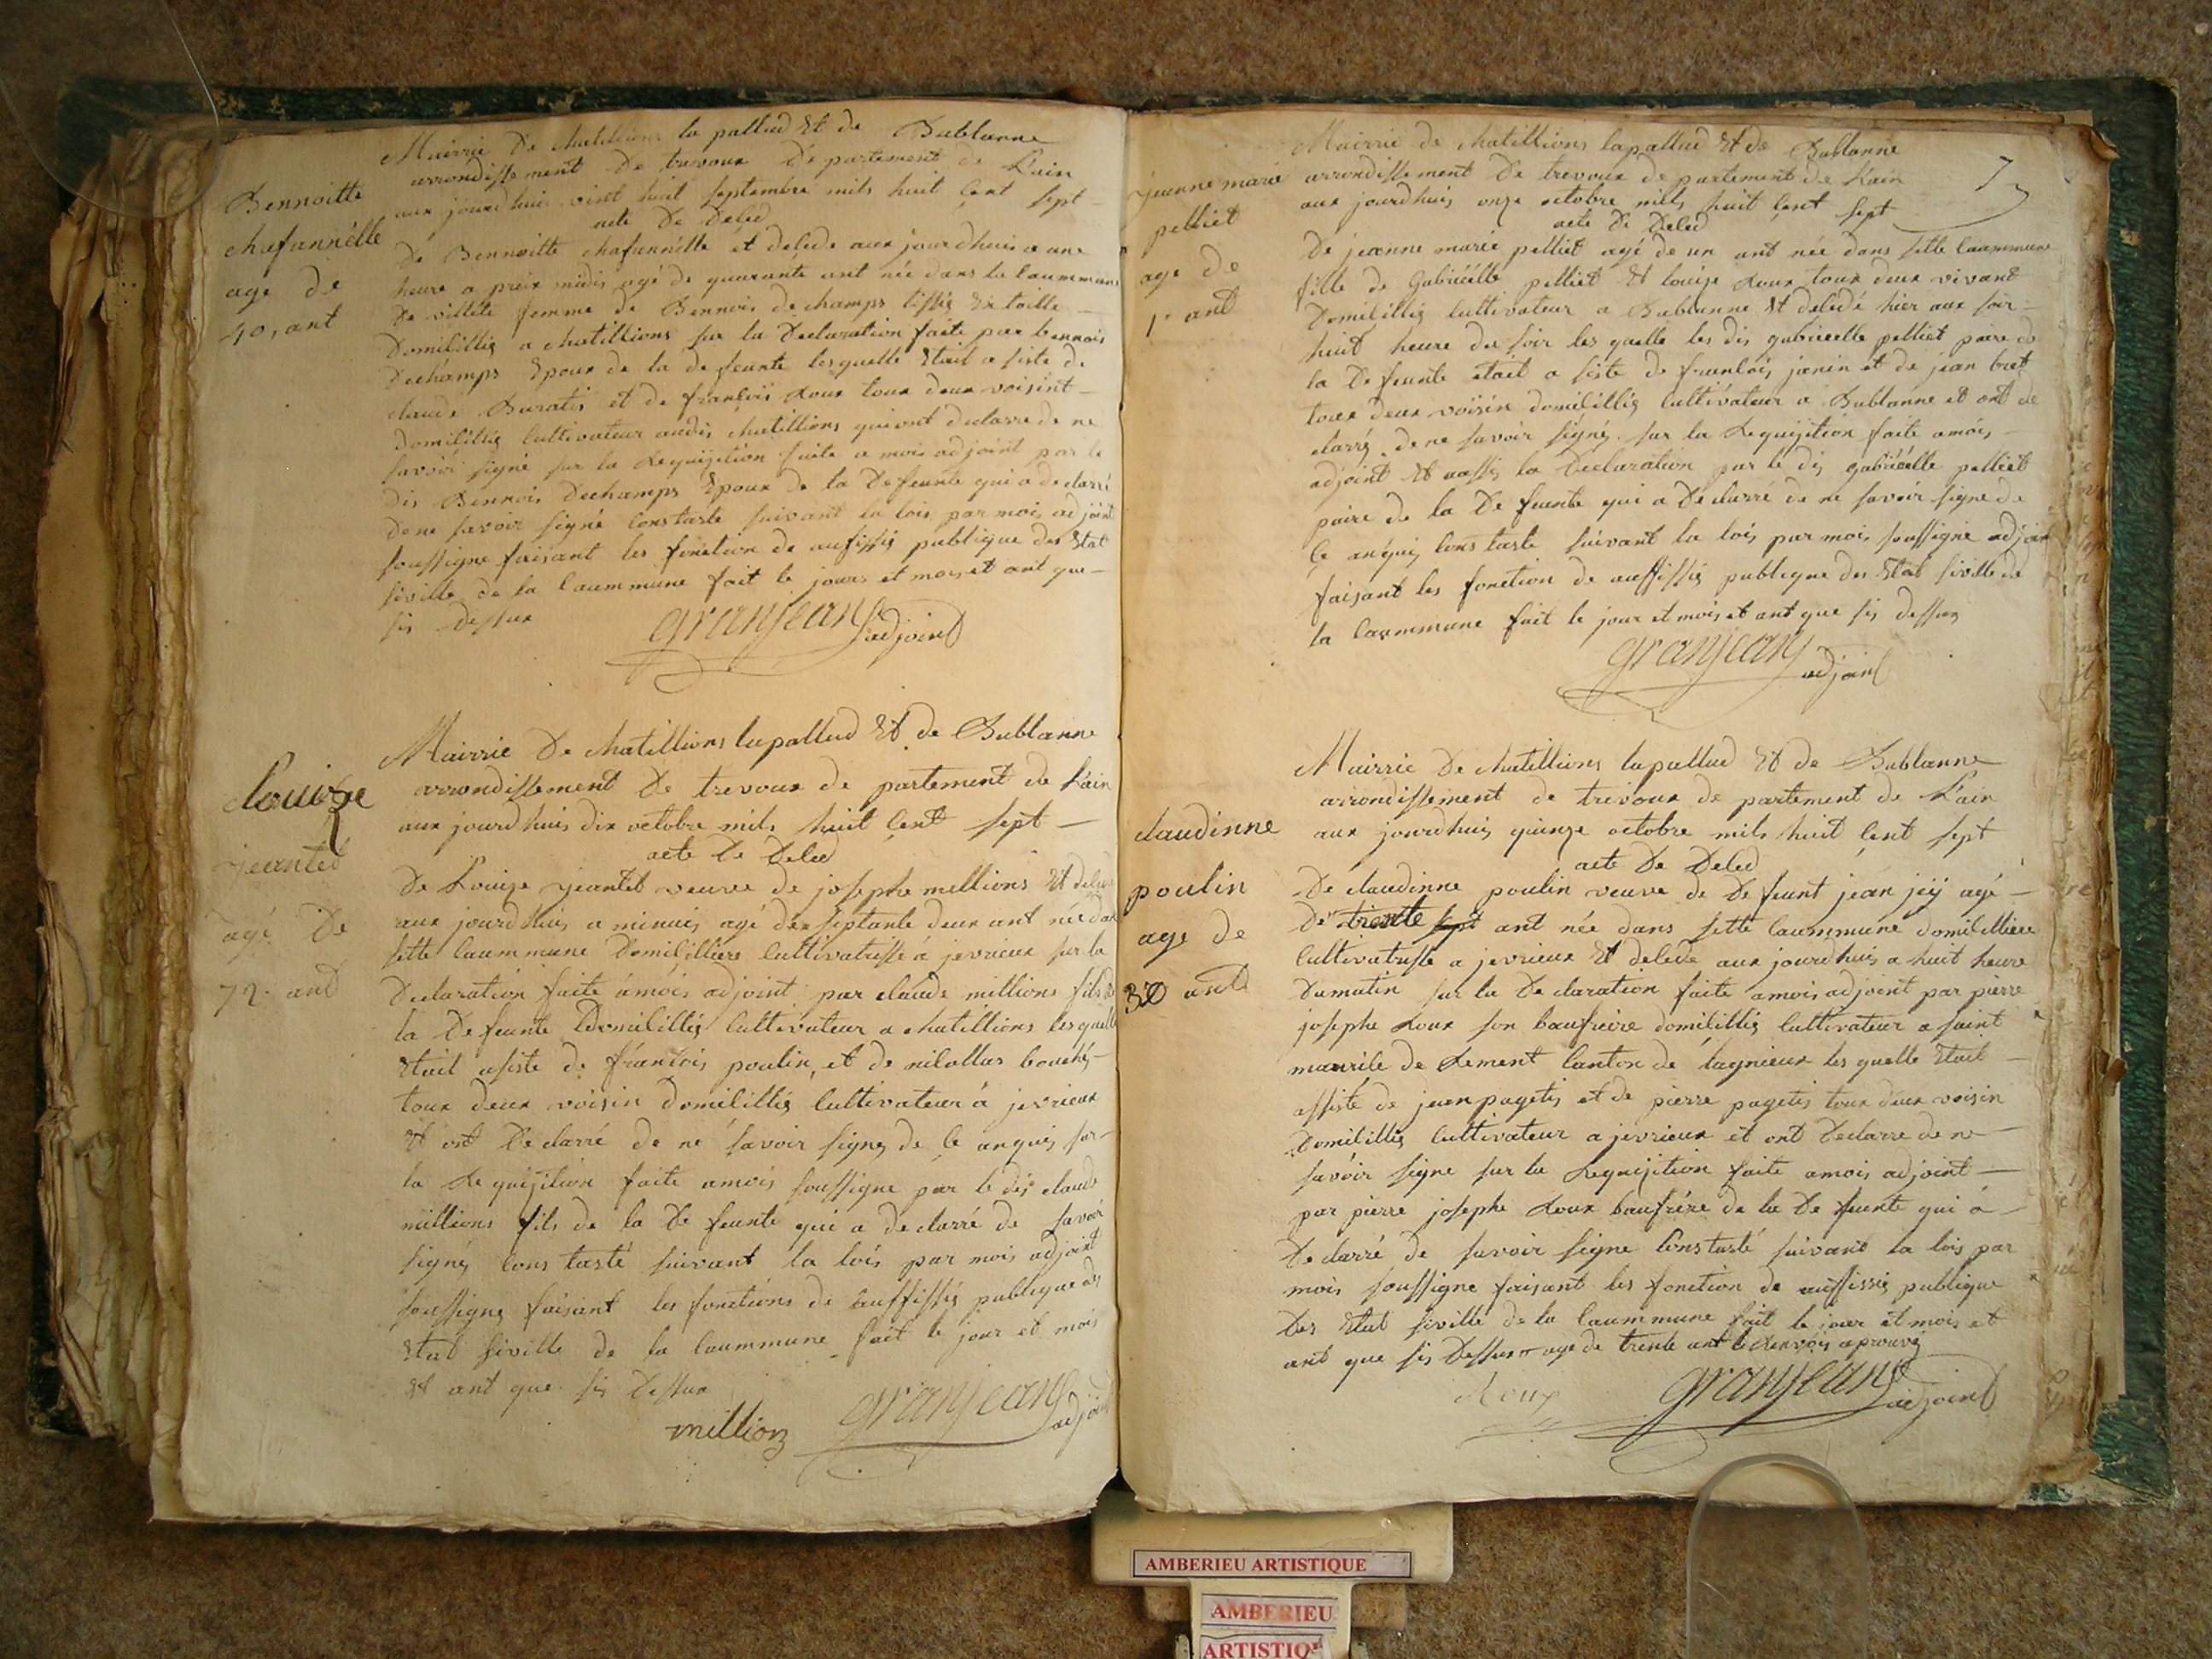 Mairrie De chatillions la pallud Et de Bublanne
arrondissement De trevoux Departement de L'ain
aux jourdhuis vint huit septembre mils huit Cent sept
acte De Deled
Bennoitte
chafannélle
age de
40, ant
De Bennoitte chafannélle et deledé aux jourdhuis a une
heure a préx midis agé de quarante ant née dans la Caummune
De villéte femme de Bennois dechamps
Domilillié a chatillions sur la Declaration faite par bennois
Dechamps Epoux de la defeunte lesquelle Etait a siste de
claude Buratis et de françois Roux toux deux voisint
Domilillié Cultivateur audis chatillions quiont declarre de ne
savoir signé sur la Requijition faite a mois adjoint par le
dis Bennois Dechamps Epoux de la Defeunte qui a declarré
dene savoir signé Constasté suivant la lois par mois adjoint
soussigne faisant les fonction de aufissié publique des Etat
siville de la Caummune fait le jours et mois et ant que
sis dessux
granjean adjoint
Mairrie De chatillions lapallud Et de Bublanne
arrondissement De trevoux de partement de L'ain
aux jourdhuis dix octobre mils huit Cent sept
acte De Deled
Louize
jeantet
agé De
72 ant
De Louize jeantet veuve de josephe millions Et deledé
aux jourdhuis a minuis agé de septante deux ant née dans
sette Caummune Domilillière Cultivatrisse a jevrieux sur la
Declaration faite amois adjoint par claude millions fils de
la Defeunte Domilillié Cultivateur a chatillions lesquelle
Etait asiste de françois poulin, et de nilollas bouché
toux deux voisin domilillié Cultivateur á jevrieux
Et ont Declarré de ne savoir signé de Ce anquis sur
la Requijition faite amois soussigne par le dis claude
millions fils de la De feunte qui a declarré de savoir
signé Constasté suivant la lois par mois adjoint
soussigne faisant les fonctions de auffissié publique des
Etat siville de la Caummune fait le jour et mois
Et ant que sis Dessux
million granjean adjoint
Mairrie de chatillions lapallud Et de Bublanne
arrondissement De trevoux departement de L'ain
aux jourdhuis onze octobre mils huit Cent sept
acte De Deled
7
jeanne marie
pelliet
age de
1 ant
De jeanne marie pelliet agé de un ant née dans sette Caummune
fille de Gabriélle pelliet Et louise Roux toux deux vivant
Domilillié Cultivateur a Bublanne Et deledé hier aux soir
huit heure du soir les quelle les dis gabriélle pelliet paire de
la Defeunte etait a siste de françois janin et de jean bret
toux deux voisin domilillié Cultivateur a Bublanne et ont de
clarré de ne savoir signé sur la Requijition faite amois
adjoint Et aussis la Declaration par le dis gabriélle pelliet
paire de la De feunte qui a Declarré de ne savoir signe de
Ce anquis Constasté suivant la lois par mois soussigne adjoint
faisant les fonction de auffissié publique des Etat siville de
la Caummune fait le jour et mois et ant que sis dessux
granjean adjoint
Mairrie De chatillions lapallud Et de Bublanne
arrondissement de trevoux departement de L'ain
aux jourdhuis quinze octobre mils huit Cent sept
acte De Deled
claudinne
poulin
age de
30 ant
De claudinne poulin veuve de Defeunt jean jeÿ agé
De trente sept ant née dans sette Caummune domilillière
Cultivatrisse a jevrieux Et deledé aux jourdhuis a huit heure
Dumatin sur la Declaration faite amois adjoint par pierre
josephe Roux son baufreire domilillié Cultivateur a saint
maurile de Rement Canton de lagnieux les quelle Etait
assisté de jean pagetis et de pierre pagetis toux deux voisin
Domilillié Cultivateur a jevrieux et ont Declarre de ne
savoir signe sur la Requijition faite amois adjoint
par pierre josephe Roux baufrére de la De feunte qui á
Declarré de savoir signe Constasté suivant la lois par
mois soussigne faisant les fonction de auffissié publique
Des Etat siville de la Caummune fait le jour et mois et
ant que sis Dessux age de trente ant le Renvois aprouvé
Roux granjean adjoint
AMBERIEU ARTISTIQUE
AMBERIEU
ARTISTIQU